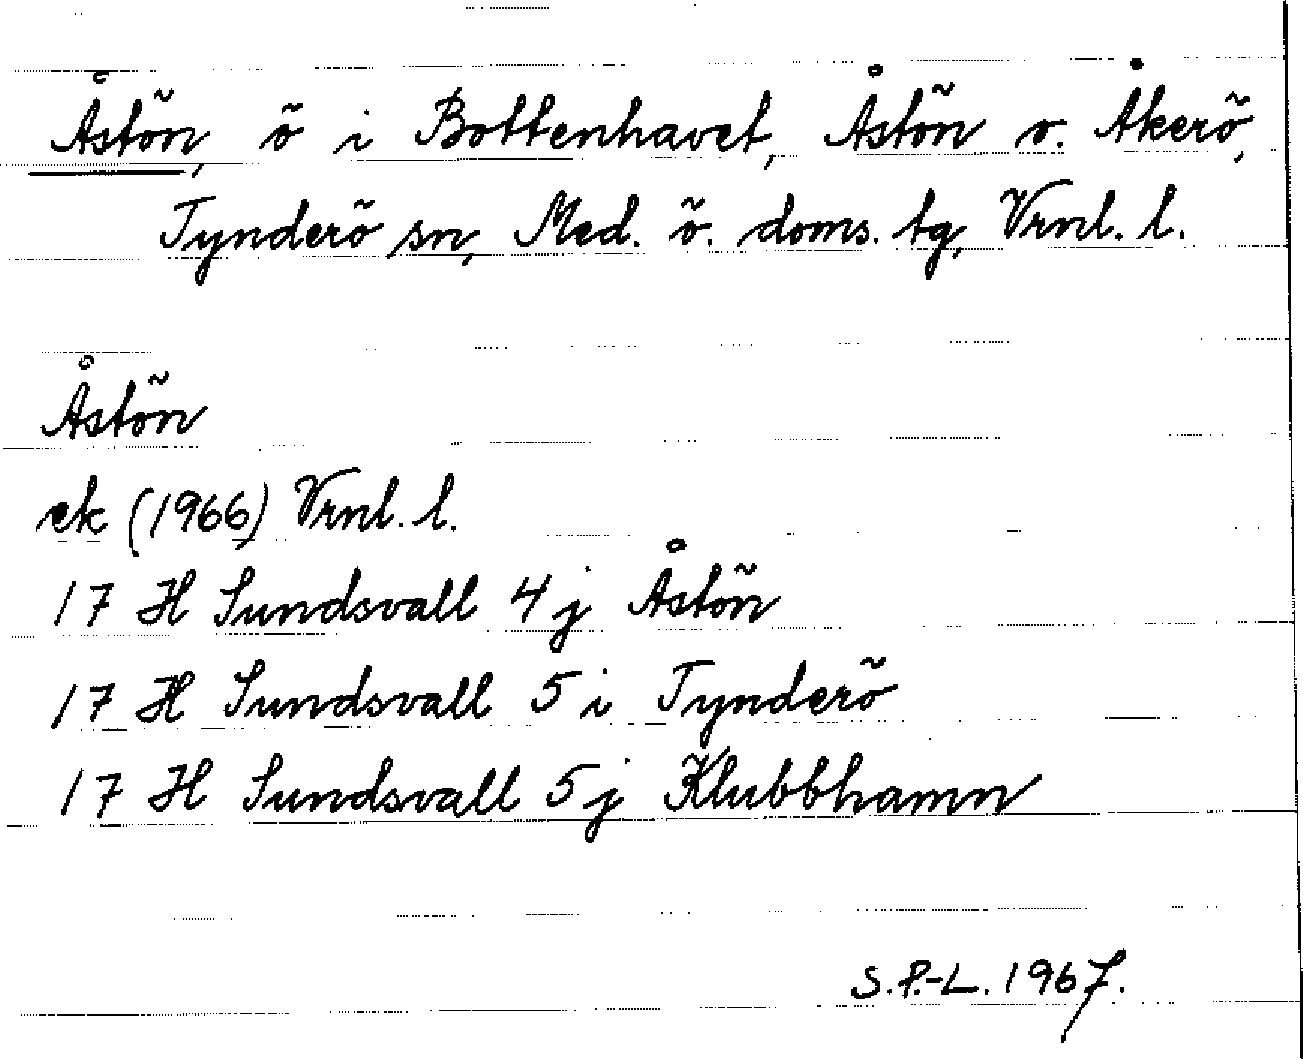 Åstön, ö i Bottenhavet, Åstön o. Åkerö,
Tynderö sn, Med. ö. doms. tg, Vrnl. l.
Åstön
ek (1966) Vrnl. l.
17 H Sundsvall 4 j Åstön
17 H Sundsvall 5 i Tynderö
17 H Sundsvall 5 j Klubbhamn
S.P.-L. 1967.